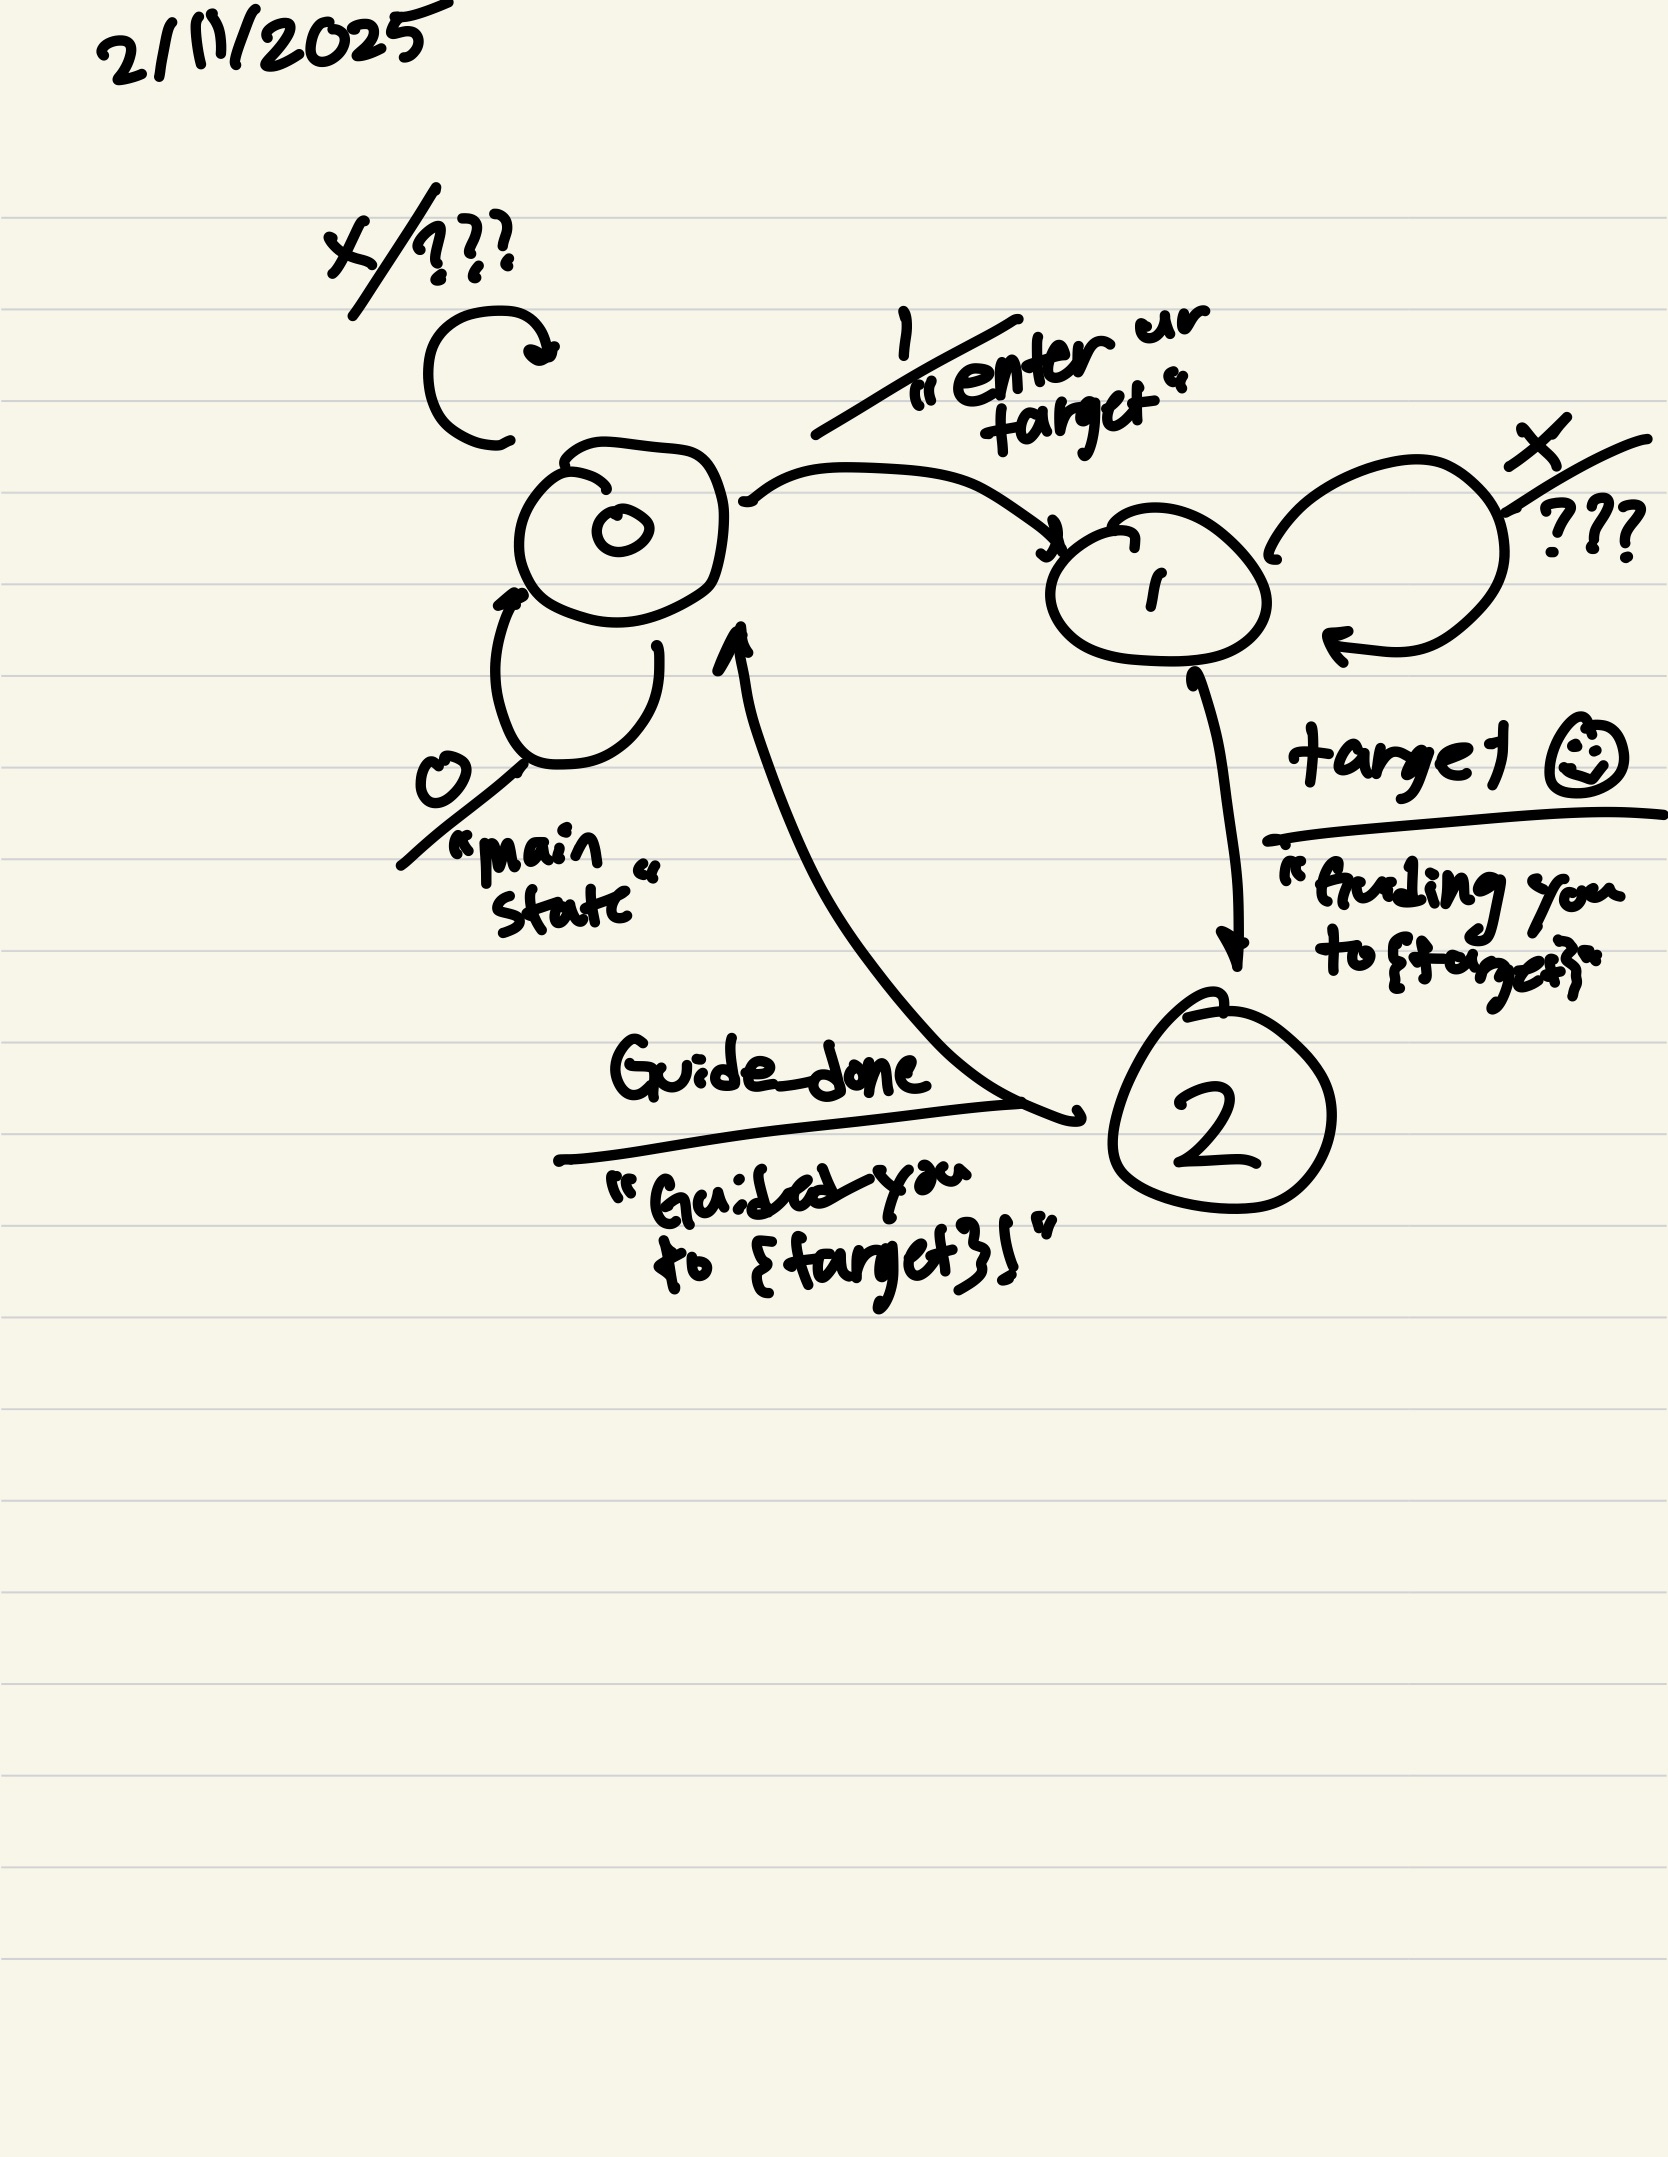 2/11/2025
x/???
1
"enter ur
target"
x
???
0
1
target
0
"main
state"
"Guiding you
to {target}"
Guide_done
2
"Guided you
to {target}!"